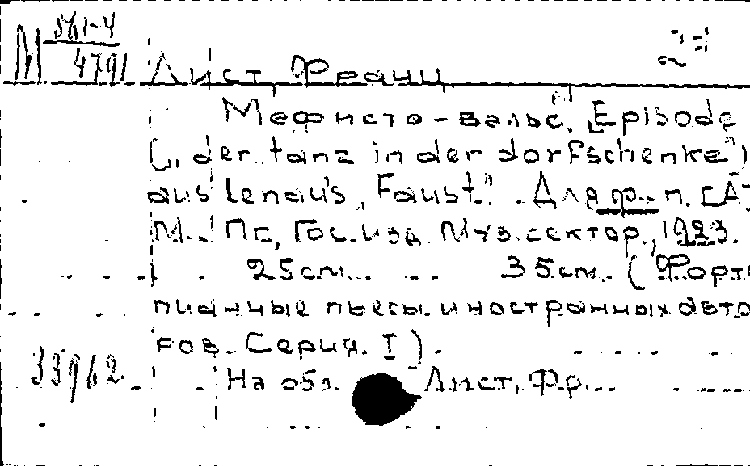 М 561-4
4791 Лист, Франц
Мефисто-вальс. „Episode
(„der tanz in der dorfschenke")
aus lenau's „Faust". Для ф.-п. [А]
М. Пг, Гос. изд. Муз. сектор, 1923.
25 см. 35 см. (Форте
пианные пьесы иностранных авто
ров. Серия. I).
33962 На обл. Лист, Фр.